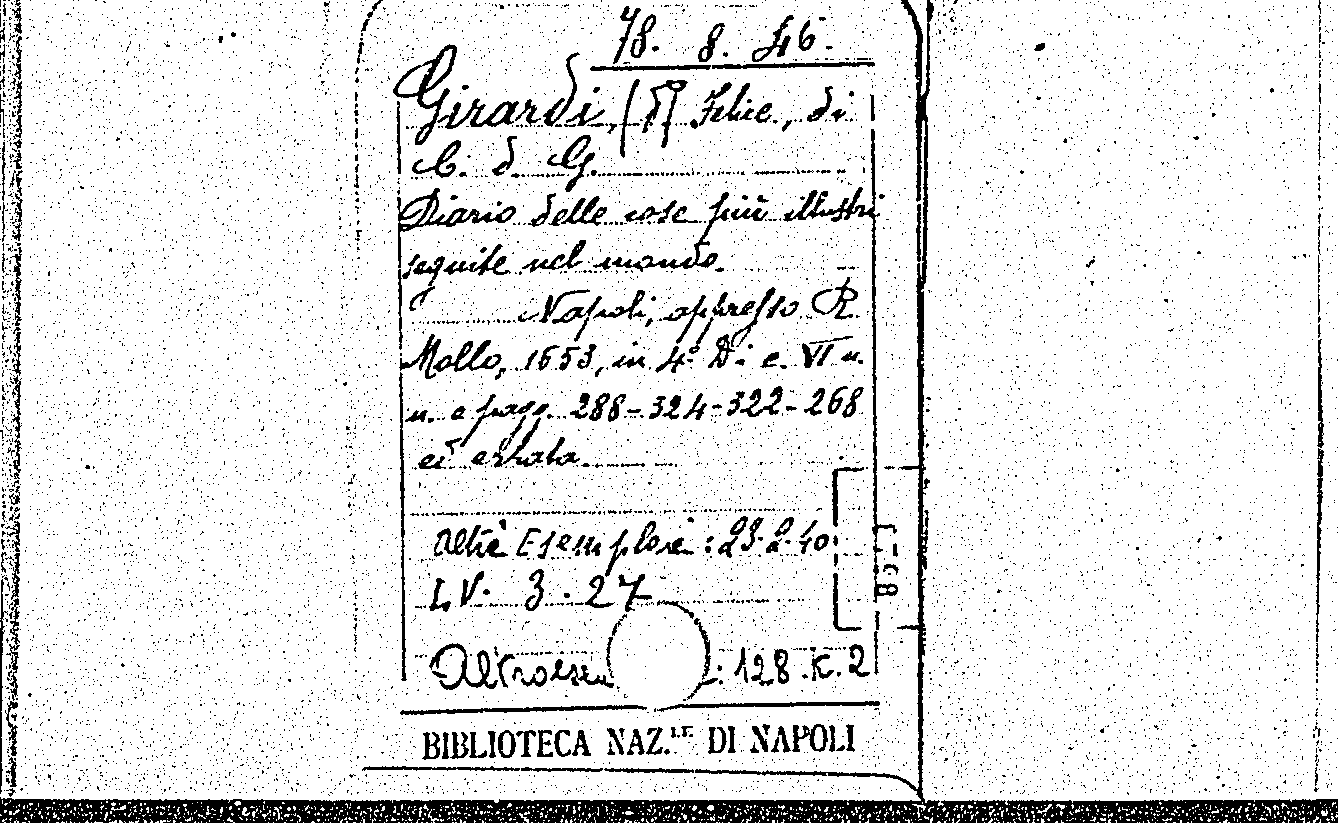 78. 8. 46.
Girardi, (d) Felice, di
C. d. G.
Diario delle cose più illustri
seguite nel mondo.
Napoli, appresso R
Mollo, 1653, in 4° Di c. VI n.
n. e pagg. 288-324-322-268
ed errata.
Altri Esemplari: 23.2.40.
LV. 3. 27
Altro esem : 128.K.2
BIBLIOTECA NAZ.LE DI NAPOLI